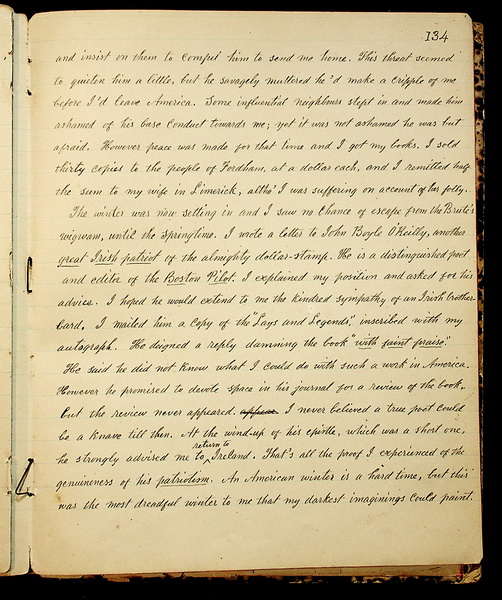 134
and insist on them to compel him to send me home. This threat seemed
to quieten him a little, but he savagely muttered he'd make a cripple of me
before I'd leave America. Some influential neighbours stept in and made him
ashamed of his base conduct towards me; yet it was not ashamed he was but
afraid. However peace was made for that time and I got my books. I sold
thirty copies to the people of Fordham, at a dollar each, and I remitted half
the sum to my wife in Limerick, altho' I was suffering on account of her folly.
The winter was now setting in and I saw no chance of escape from the Brute's
wigwam, until the springtime. I wrote a letter to John Boyle O'Reilly, another
great Irish patriot of the almighty dollar-stamp. He is a distinguished poet
and editor of the Boston Pilot. I explained my position and asked for his
advice. I hoped he would extend to me the kindred sympathy of an Irish brother-
bard. I mailed him a copy of the "Lays and Legends", inscribed with my
autograph. He deigned a reply damning the book "with faint praise."
He said he did not know what I could do with such a work in America.
However he promised to devote space in his journal for a review of the book,
but the review never appeared. appear I never believed a true poet could
be a knave till then. At the wind-up of his epistle, which was a short one,
he strongly advised me to return to Ireland. That's all the proof I experienced of the
genuineness of his patriotism. An American winter is a hard time, but this
was the most dreadful winter to me that my darkest imaginings could paint.